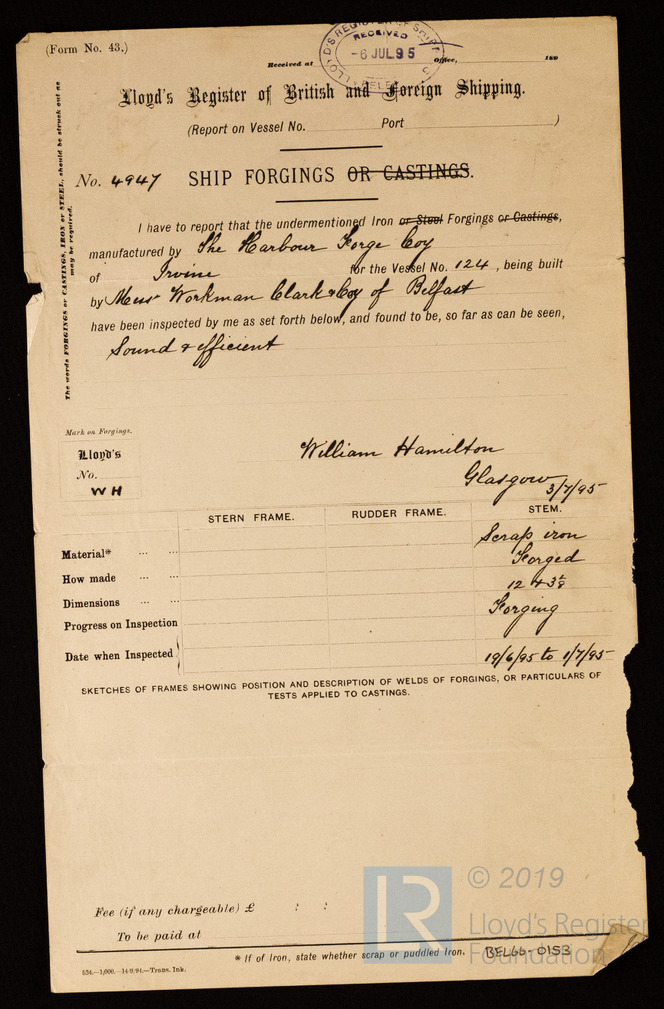 (Form No. 43.)
LLOYD'S REGISTER OF SHIPPING
RECEIVED
-6 JUL 95
BELFAST
Received at Office, 189
Lloyd's Register of British and Foreign Shipping.
(Report on Vessel No. Port )
The words FORGINGS or CASTINGS, IRON or STEEL, should be struck out as may be required.
No. 4947 SHIP FORGINGS OR CASTINGS.
I have to report that the undermentioned Iron or Steel Forgings or Castings,
manufactured by The Harbour Forge Coy
of Irvine for the Vessel No. 124, being built
by Messrs Workman Clark & Coy of Belfast
have been inspected by me as set forth below, and found to be, so far as can be seen,
Sound & efficient
Mark on Forgings.
Lloyd's
No.
WH
William Hamilton
Glasgow 3/7/95
STERN FRAME. RUDDER FRAME. STEM.
Material* ... ... Scrap iron
How made ... ... Forged
Dimensions ... ... 12 + 3⅞
Progress on Inspection Forging
Date when Inspected 19/6/95 to 1/7/95
SKETCHES OF FRAMES SHOWING POSITION AND DESCRIPTION OF WELDS OF FORGINGS, OR PARTICULARS OF
TESTS APPLIED TO CASTINGS.
Fee (if any chargeable) £ : :
To be paid at
* If of Iron, state whether scrap or puddled Iron.
BEL66-0153
534.—1,000.—14/9/94.—Trans. Ink.
LR
© 2019
Lloyd's Register
Foundation